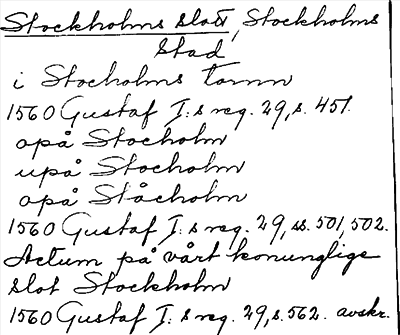 Stockholms slott, Stockholms
Stad
i Stocholms tornn
1560 Gustaf I:s reg. 29, s. 451.
opå Stocholm
upå Stocholm
opå Ståcholm
1560 Gustaf I:s reg. 29, ss. 501, 502.
Actum på vårt konunglige
slot Stockholm
1560 Gustaf I:s reg. 29, s. 562. avskr.